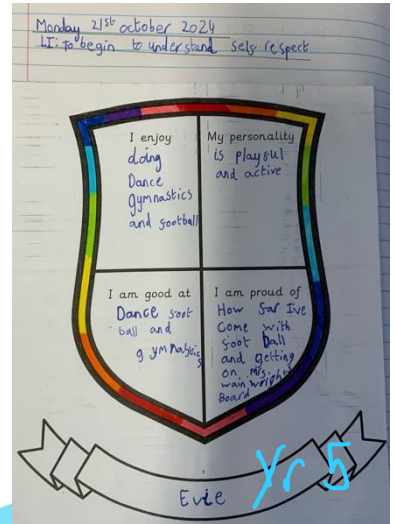 Monday 21st october 2024
LI: to begin to understand self respect
I enjoy
doing
Dance
gymnastics
and football
My personality
is playful
and active
I am good at
Dance foot
ball and
gymnastics
I am proud of
How far Ive
Come with
foot ball
and getting
on Mrs.
wainwrights
Board
Evie
Yr 5